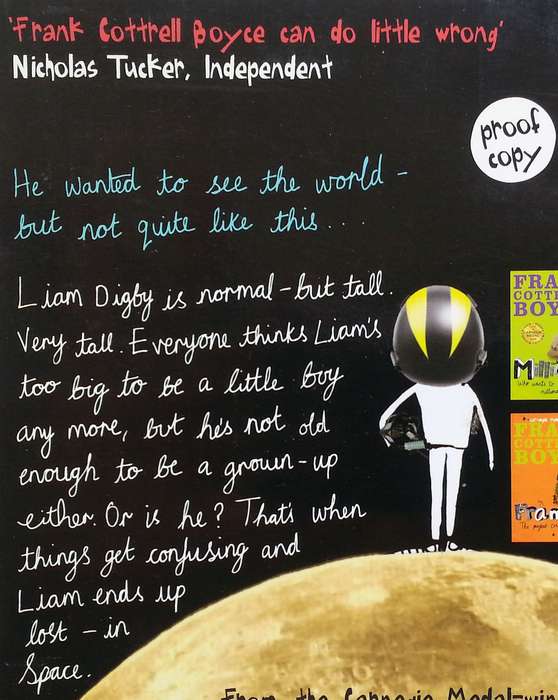 'Frank Cottrell Boyce can do little wrong'
Nicholas Tucker, Independent
proof
copy
He wanted to see the world -
but not quite like this...
Liam Digby is normal – but tall.
Very tall. Everyone thinks Liam's
too big to be a little boy
any more, but he's not old
enough to be a grown-up
either. Or is he? That's when
things get confusing and
Liam ends up
lost – in
Space.
FRA
COTT
BOY
Milli
Who wants to
FRA
COTT
BOY
Fram
From the Carnegie Medal-win